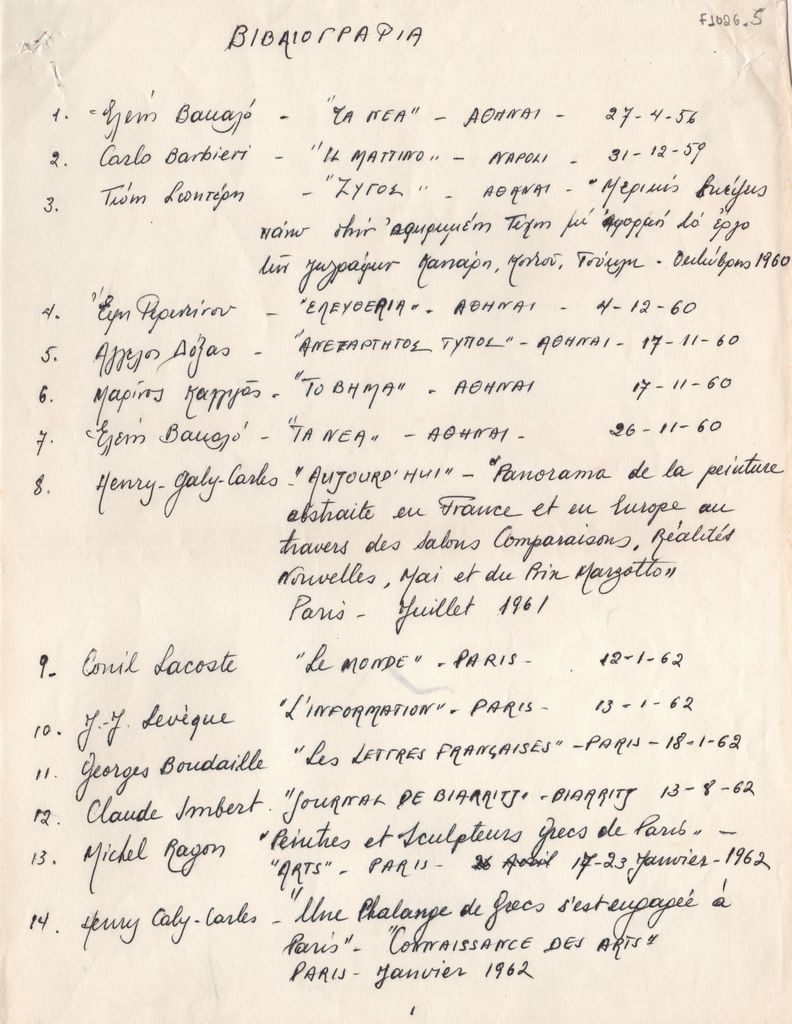 F1026.5
ΒΙΒΛΙΟΓΡΑΦΙΑ
1. Ελένη Βακαλό - "ΤΑ ΝΕΑ" - ΑΘΗΝΑΙ - 27-4-56
2. Carlo Barbieri - "IL MATTINO" - NAPOLI - 31-12-59
3. Τώνη Σπητέρη - "ΖΥΓΟΣ" - ΑΘΗΝΑΙ - "Μερικές σκέψεις
πάνω στην αφηρημένη Τέχνη με αφορμή το έργο
των ζωγράφων Κανιάρη, Κοντού, Τούγια - Οκτώβρης 1960
4. Έφη Φερεντίνου - "ΕΛΕΥΘΕΡΙΑ" - ΑΘΗΝΑΙ - 4-12-60
5. Άγγελος Δόξας - "ΑΝΕΞΑΡΤΗΤΟΣ ΤΥΠΟΣ" - ΑΘΗΝΑΙ - 17-11-60
6. Μαρίνος Καλλιγάς - "ΤΟ ΒΗΜΑ" - ΑΘΗΝΑΙ 17-11-60
7. Ελένη Βακαλό - "ΤΑ ΝΕΑ" - ΑΘΗΝΑΙ - 26-11-60
8. Henry-Galy-Carles - "AUJOURD'HUI" - "Panorama de la peinture
abstraite en France et en Europe au
travers des Salons Comparaisons, Réalités
Nouvelles, Mai et du Prix Marzotto"
Paris - Juillet 1961
9. Conil Lacoste "Le MONDE" - PARIS - 12-1-62
10. J.-J. Levèque "L'INFORMATION" - PARIS - 13-1-62
11. Georges Boudaille "Les LETTRES FRANÇAISES" - PARIS - 18-1-62
12. Claude Imbert "JOURNAL DE BIARRITZ" - BIARRITZ 13-8-62
13. Michel Ragon "Peintres et Sculpteurs grecs de Paris" -
"ARTS" - PARIS - 17-23 Janvier - 1962
14. Henry Galy-Carles - "Une Phalange de Grecs s'est engagée à
Paris" - "CONNAISSANCE DES ARTS"
PARIS - Janvier 1962
1